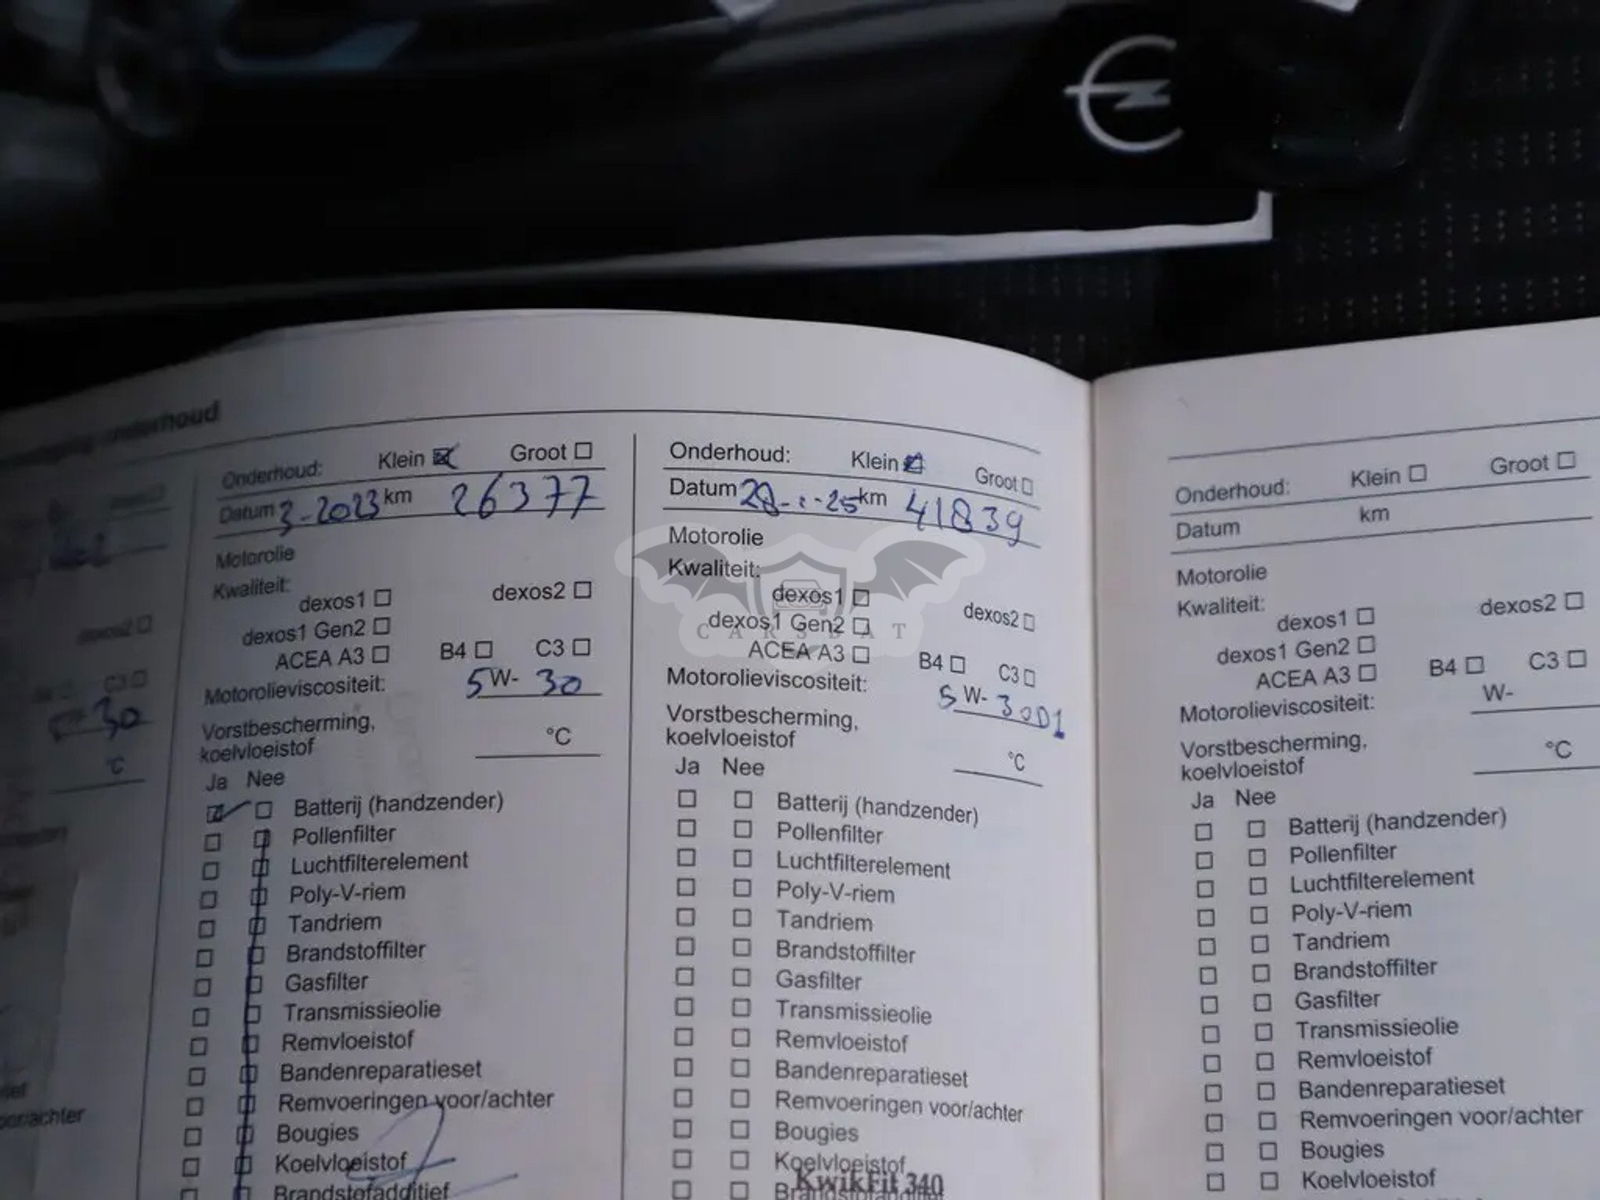 onderhoud
30
°C
Onderhoud: Klein Groot
Datum 3-2023 km 26377
Motorolie
Kwaliteit:
dexos1 dexos2
dexos1 Gen2
ACEA A3 B4 C3
Motorolieviscositeit: 5 W- 30
Vorstbescherming,
koelvloeistof °C
Ja Nee
Batterij (handzender)
Pollenfilter
Luchtfilterelement
Poly-V-riem
Tandriem
Brandstoffilter
Gasfilter
Transmissieolie
Remvloeistof
Bandenreparatieset
Remvoeringen voor/achter
Bougies
Koelvloeistof
Brandstofadditief
Onderhoud: Klein Groot
Datum km 41839
Motorolie
Kwaliteit:
dexos1 dexos2
dexos1 Gen2
ACEA A3 B4 C3
Motorolieviscositeit: 5 W- 30D1
Vorstbescherming,
koelvloeistof °C
Ja Nee
Batterij (handzender)
Pollenfilter
Luchtfilterelement
Poly-V-riem
Tandriem
Brandstoffilter
Gasfilter
Transmissieolie
Remvloeistof
Bandenreparatieset
Remvoeringen voor/achter
Bougies
Koelvloeistof
KwikFit 340
Onderhoud: Klein Groot
Datum km
Motorolie
Kwaliteit:
dexos1 dexos2
dexos1 Gen2
ACEA A3 B4 C3
Motorolieviscositeit: W-
Vorstbescherming,
koelvloeistof °C
Ja Nee
Batterij (handzender)
Pollenfilter
Luchtfilterelement
Poly-V-riem
Tandriem
Brandstoffilter
Gasfilter
Transmissieolie
Remvloeistof
Bandenreparatieset
Remvoeringen voor/achter
Bougies
Koelvloeistof
CARSBAT